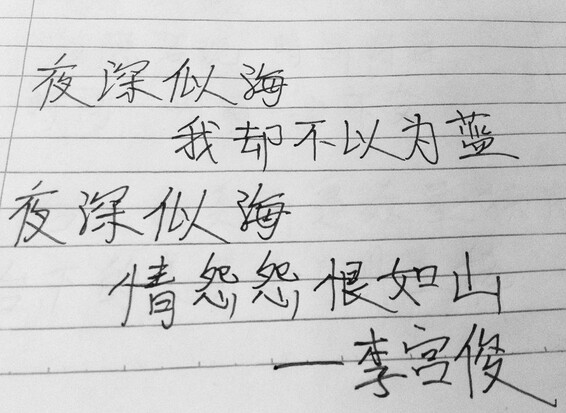 夜深似海
我却不以为蓝
夜深似海
情怨怨恨如山
—李宫俊